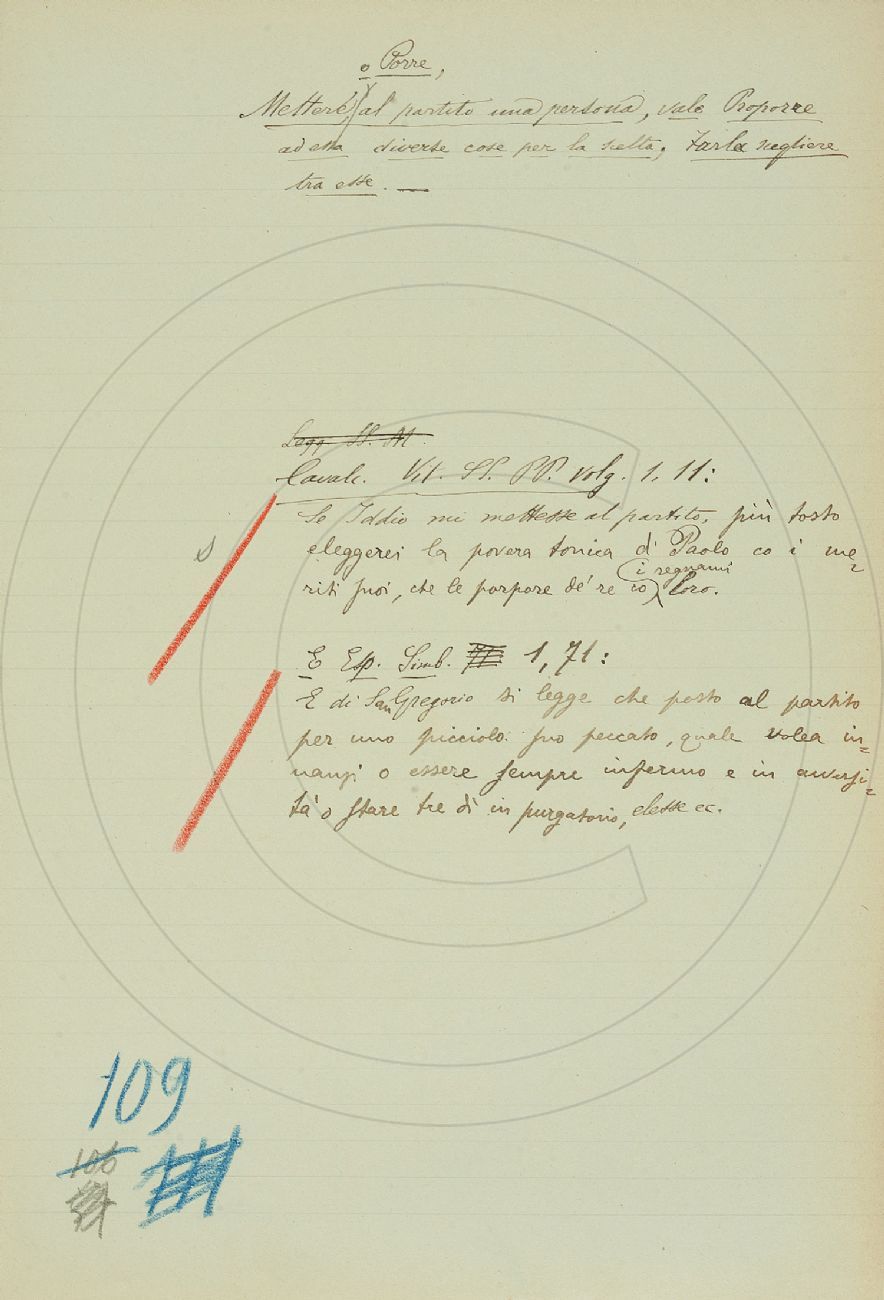 o Porre,
Mettere, al partito una persona, vale Proporre
ad essa diverse cose per la scelta, Farla scegliere
tra esse. —
Legg. SS. M.
Cavalc. Vit. SS. PP. volg. 1. 11:
Se Iddio mi mettesse al partito, più tosto
s
eleggerei la povera tonica di Paolo co i me=
i regnami
riti suoi, che le porpore de' re co loro.
E Esp. Simb. 1, 71:
E di San Gregorio si legge che posto al partito
per uno picciolo suo peccato, quale volea in=
nanzi o essere sempre infermo e in aversi=
tà o stare tre dì in purgatorio, elesse ec.
109
106